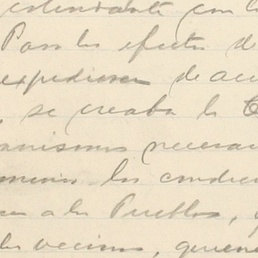 con l
Para los efectos de
expedirse de acu
, se creaba la C
anismos necesar
los condic
a los Pueblos, y
los vecinos, quiene